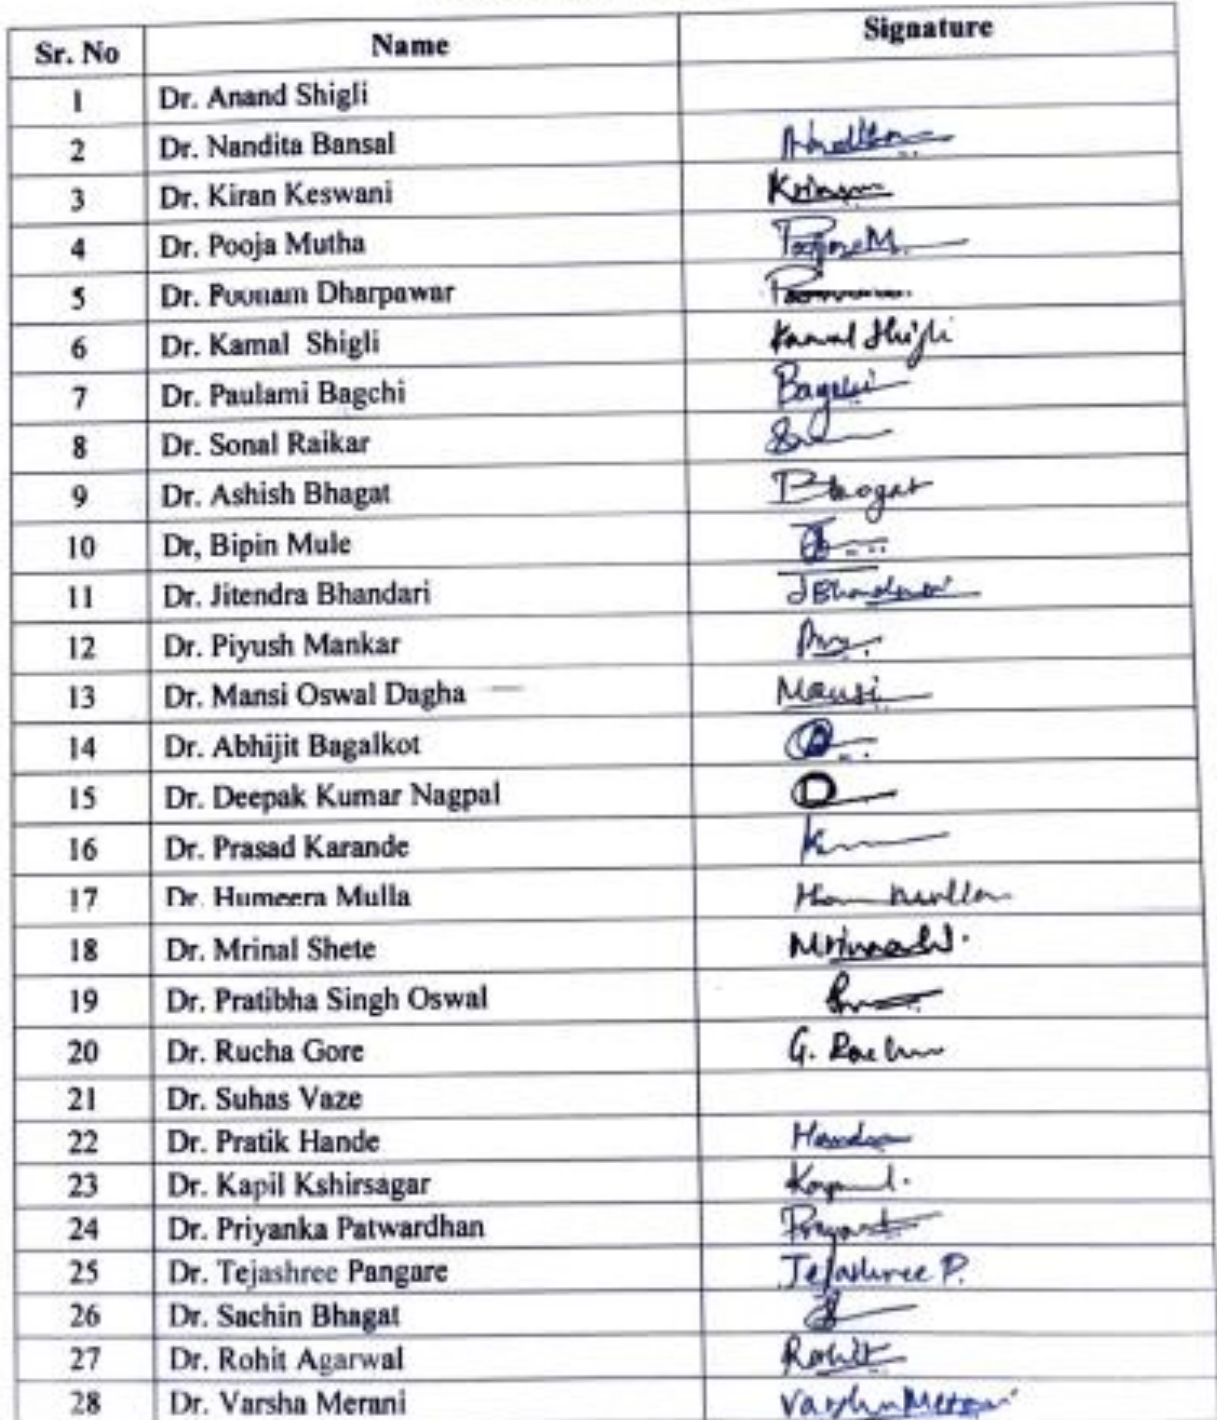 Sr. No Name Signature
1 Dr. Anand Shigli
2 Dr. Nandita Bansal
3 Dr. Kiran Keswani
4 Dr. Pooja Mutha PoojaM.
5 Dr. Poonam Dharpawar
6 Dr. Kamal Shigli Kamal Shigli
7 Dr. Paulami Bagchi Bagchi
8 Dr. Sonal Raikar
9 Dr. Ashish Bhagat Bhagat
10 Dr, Bipin Mule
11 Dr. Jitendra Bhandari JBhandari
12 Dr. Piyush Mankar
13 Dr. Mansi Oswal Dagha Mansi
14 Dr. Abhijit Bagalkot
15 Dr. Deepak Kumar Nagpal
16 Dr. Prasad Karande
17 Dr. Humeera Mulla
18 Dr. Mrinal Shete
19 Dr. Pratibha Singh Oswal
20 Dr. Rucha Gore
21 Dr. Suhas Vaze
22 Dr. Pratik Hande
23 Dr. Kapil Kshirsagar
24 Dr. Priyanka Patwardhan
25 Dr. Tejashree Pangare Tejashree P.
26 Dr. Sachin Bhagat
27 Dr. Rohit Agarwal Rohit
28 Dr. Varsha Merani Varsha Merani